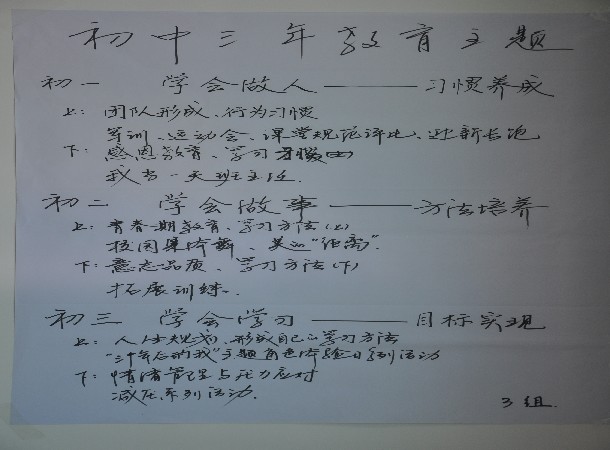 初中三年教育主题
初一 学会做人——习惯养成
上：团队形成、行为习惯
军训、运动会、课堂规范评比、迎新长跑
下：感恩教育、学习习惯
我当一天班主任
初二 学会做事——方法培养
上：青春期教育、学习方法(上)
校园集体舞、美的“距离”.
下：意志品质、学习方法(下)
拓展训练.
初三 学会学习——目标实现
上：人生规划、形成自己的学习方法
“三十年后的我”主题角色体验日系列活动
下：情绪管理与压力应对
减压系列活动.
3组.